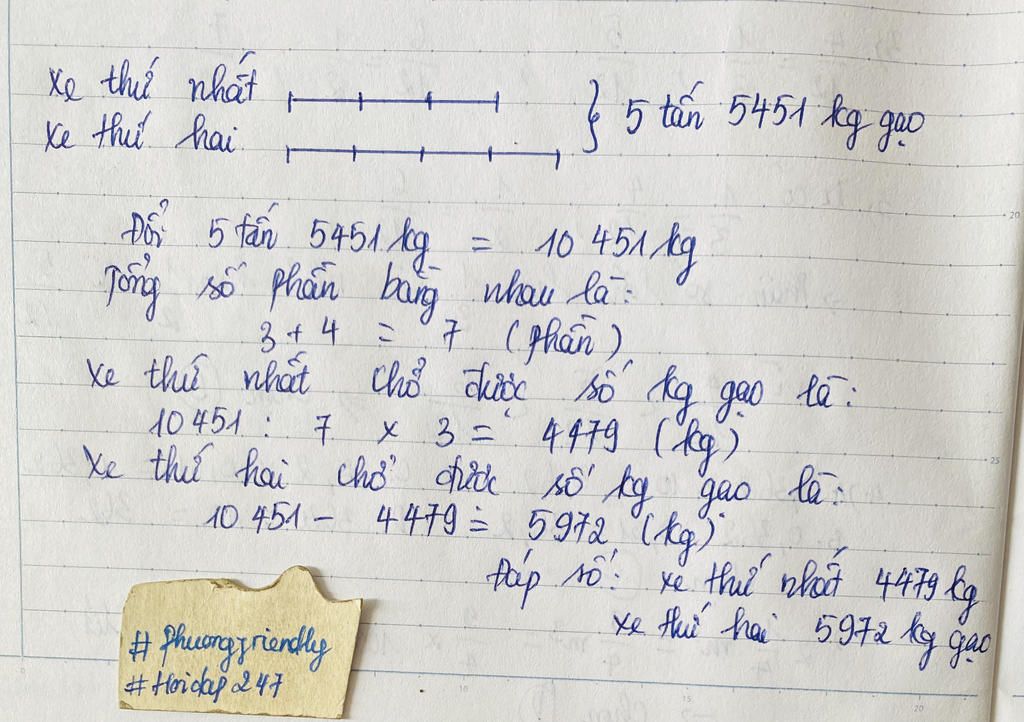 Xe thứ nhất
Xe thứ hai
} 5 tấn 5451 kg gạo
Đổi 5 tấn 5451 kg = 10 451 kg
Tổng số phần bằng nhau là:
3 + 4 = 7 (phần)
Xe thứ nhất chở được số kg gạo là:
10 451 : 7 x 3 = 4479 (kg)
Xe thứ hai chở được số kg gạo là:
10 451 - 4479 = 5972 (kg)
Đáp số: xe thứ nhất 4479 kg
xe thứ hai 5972 kg gạo
# phuongfriendly
# Hoidap 247
20
25
10
15
20